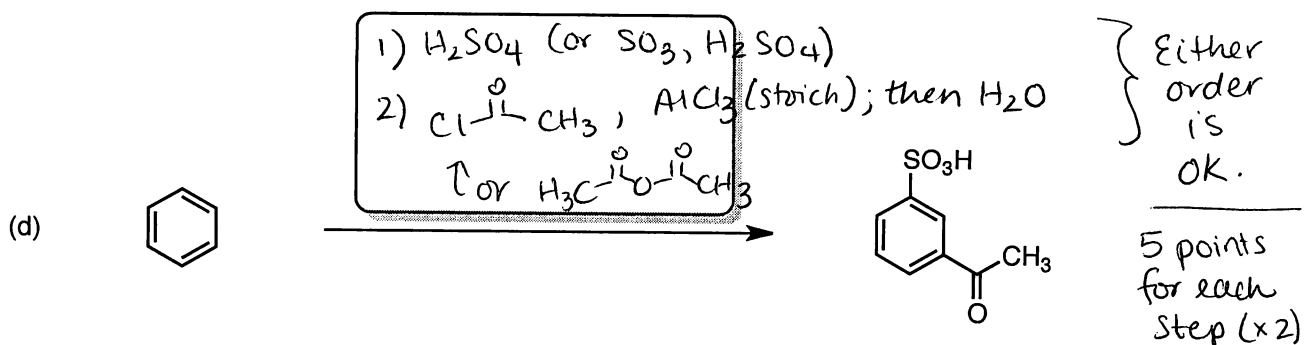 1) H₂SO₄ (or SO₃, H₂SO₄)
2) Cl O CH₃, AlCl₃ (stoich); then H₂O
↑ or H₃C O O O CH₃
} Either
order
is
OK.
5 points
for each
step (x2)
(d)
SO₃H
CH₃
O